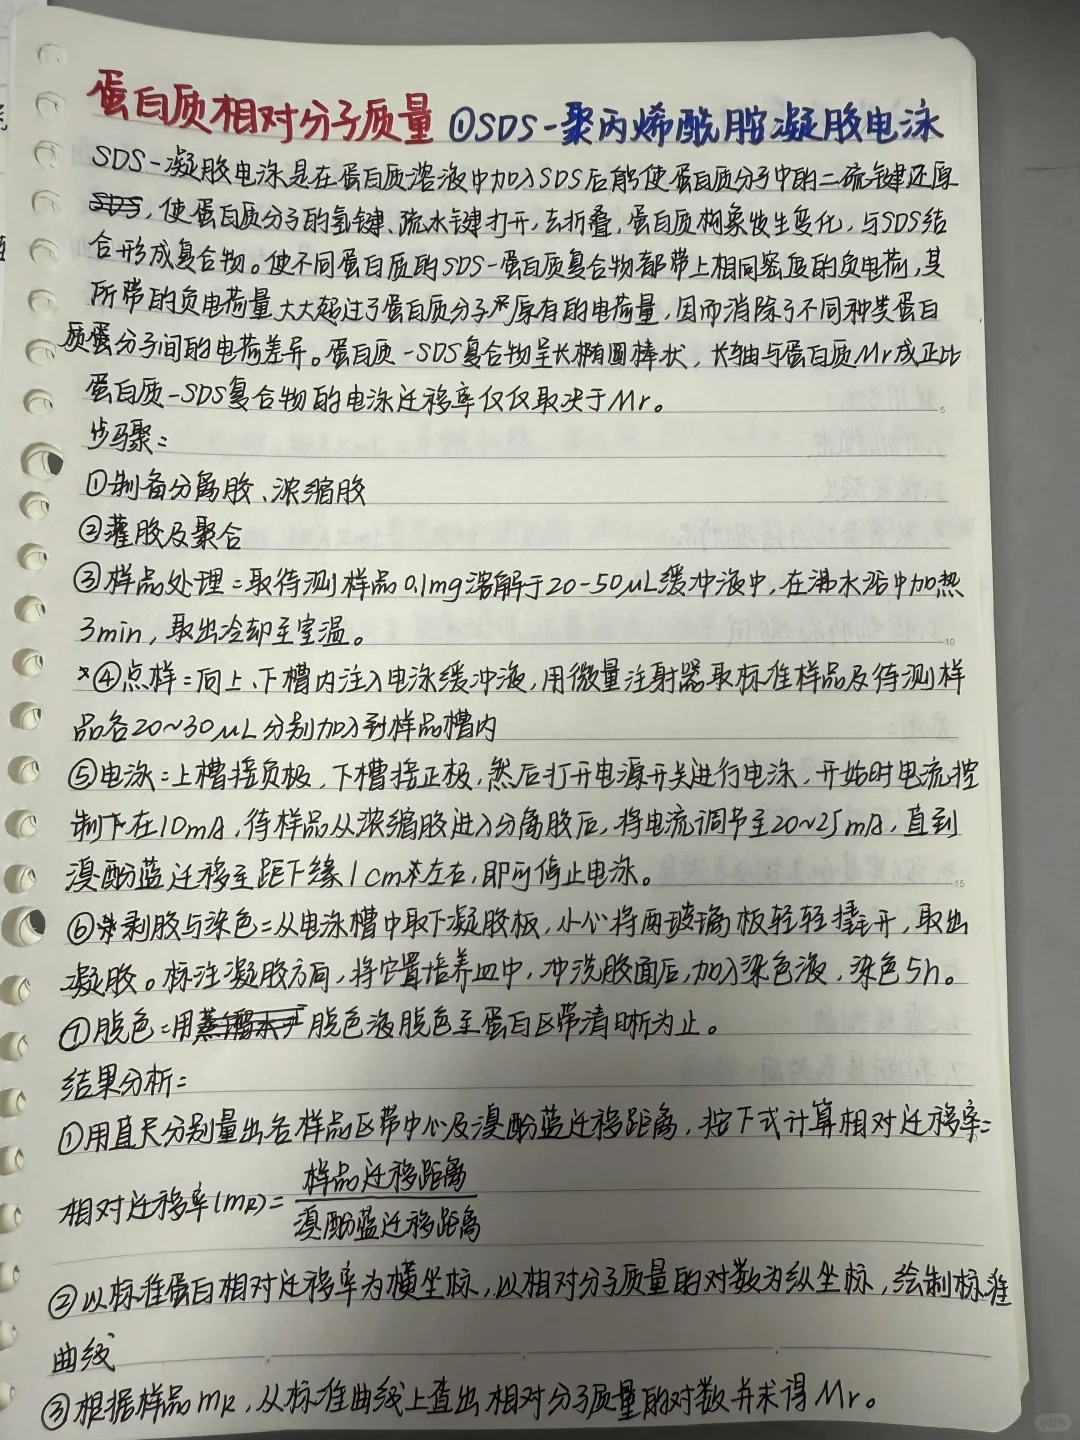 蛋白质相对分子质量 ①SDS-聚丙烯酰胺凝胶电泳
SDS-凝胶电泳是在蛋白质溶液中加入SDS后能使蛋白质分子中的二硫键还原
SDS，使蛋白质分子的氢键、疏水键打开，去折叠，蛋白质构象发生变化，与SDS结
合形成复合物。使不同蛋白质的SDS-蛋白质复合物都带上相同密度的负电荷，其
所带的负电荷量大大超过了蛋白质分子原有的电荷量，因而消除了不同种类蛋白
质蛋分子间的电荷差异。蛋白质-SDS复合物呈长椭圆棒状，长轴与蛋白质Mr成正比
蛋白质-SDS复合物的电泳迁移率仅仅取决于Mr。
5
步骤：
①制备分离胶、浓缩胶
②灌胶及聚合
③样品处理：取待测样品0.1mg溶解于20-50μL缓冲液中，在沸水浴中加热
3min，取出冷却至室温。
10
*④点样：向上、下槽内注入电泳缓冲液，用微量注射器取标准样品及待测样
品各20~30μL分别加入到样品槽内
⑤电泳：上槽接负极，下槽接正极，然后打开电源开关进行电泳，开始时电流控
制下在10mA，待样品从浓缩胶进入分离胶后，将电流调节至20~25mA，直到
溴酚蓝迁移至距下缘1cm左右，即可停止电泳。
15
⑥剥胶与染色：从电泳槽中取下凝胶板，小心将两玻璃板轻轻撬开，取出
凝胶。标注凝胶方向，将它置培养皿中，冲洗胶面后，加入染色液，染色5h。
⑦脱色：用蒸馏水 脱色液脱色至蛋白区带清晰为止。
结果分析：
①用直尺分别量出各样品区带中心及溴酚蓝迁移距离，按下式计算相对迁移率：
相对迁移率(mR)=样品迁移距离
溴酚蓝迁移距离
②以标准蛋白相对迁移率为横坐标，以相对分子质量的对数为纵坐标，绘制标准
曲线
③根据样品mR，从标准曲线上查出相对分子质量的对数并求得Mr。
小红书